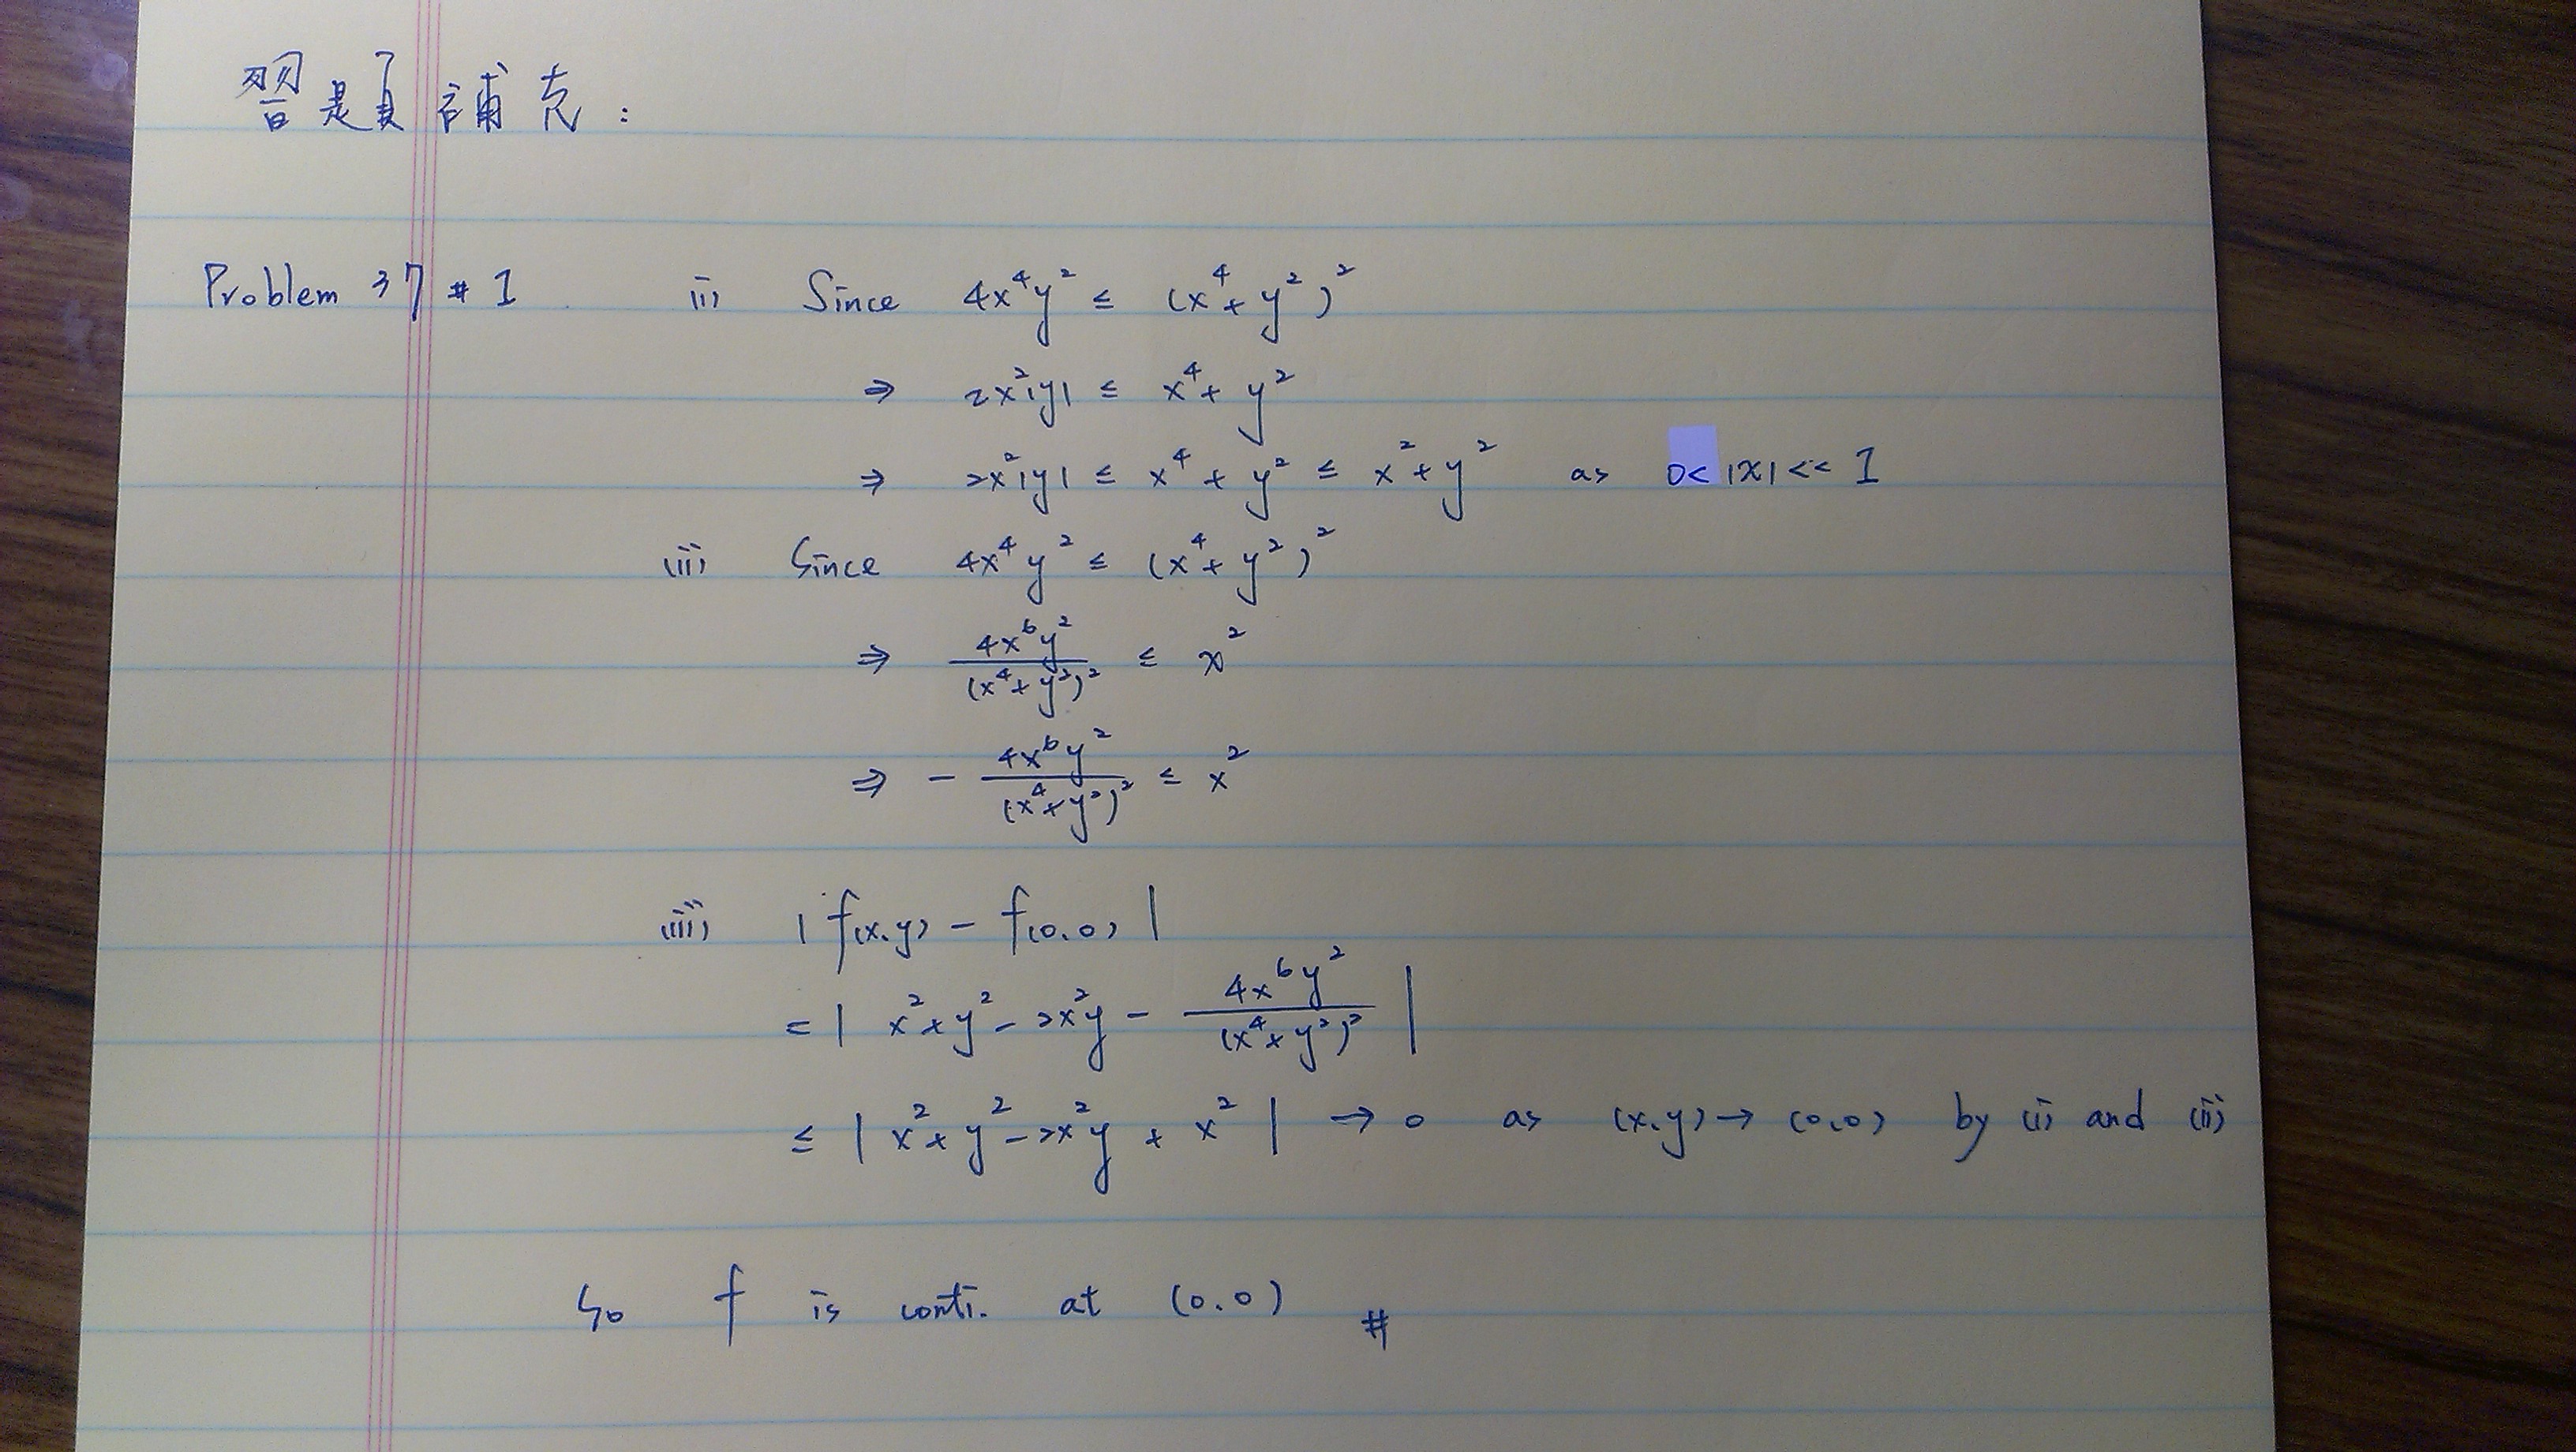 習題補充：
Problem 37 # 1 (i) Since 4x⁴y² ≤ (x⁴+y²)²
⇒ 2x²|y| ≤ x⁴+y²
⇒ 2x²|y| ≤ x⁴+y² ≤ x²+y² as 0<|x|<<1
(ii) Since 4x⁴y² ≤ (x⁴+y²)²
⇒ 4x⁶y²/(x⁴+y²)² ≤ x²
⇒ -4x⁶y²/(x⁴+y²)² ≤ x²
(iii) |f(x,y) - f(0,0)|
= |x²+y²-2x²y - 4x⁶y²/(x⁴+y²)²|
≤ |x²+y²-2x²y+x²| → 0 as (x,y)→(0,0) by (i) and (ii)
So f is conti. at (0,0) #